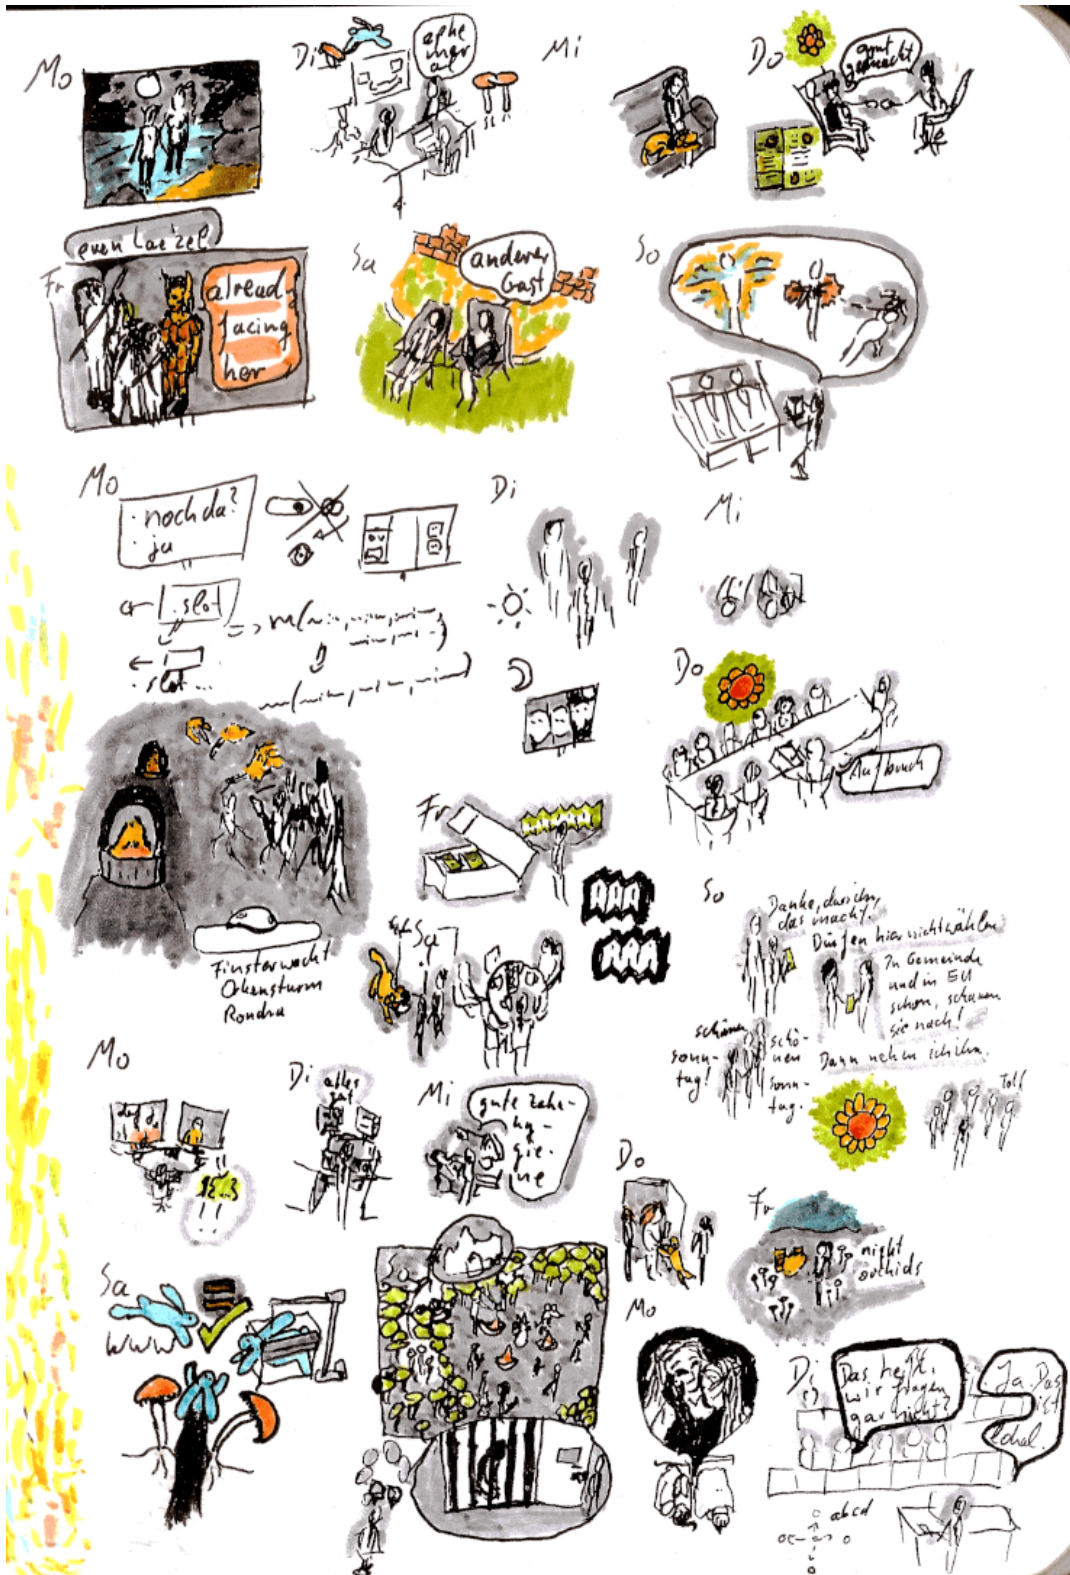 Mo
Di
ephe
mer
Mi
Do
gut
gemacht
even Lae'zel
Fr
already
facing
her
Sa
anderer
Gast
So
Mo
· noch da?
· ja
.slot
.slot...
Di
Mi
Do
Aufbruch
Fr
Finsterwacht
Orkensturm
Rondra
Sa
So
Danke, dass ihr
das macht.
Dürfen hier nicht wählen
In Gemeinde
und in EU
schon, schauen
sie nach!
Dann nehm ich ihn.
schönen
sonn-
tag!
schö-
nen
sonn-
tag.
Toll
Mo
Di
alles
gut
Mi
gute Zahn-
hy-
gie-
ne
Do
Fr
nicht
orchids
Sa
www
Mo
Di
Das heißt,
wir fragen
gar nicht?
Ja. Das
ist
lokal.
abcd